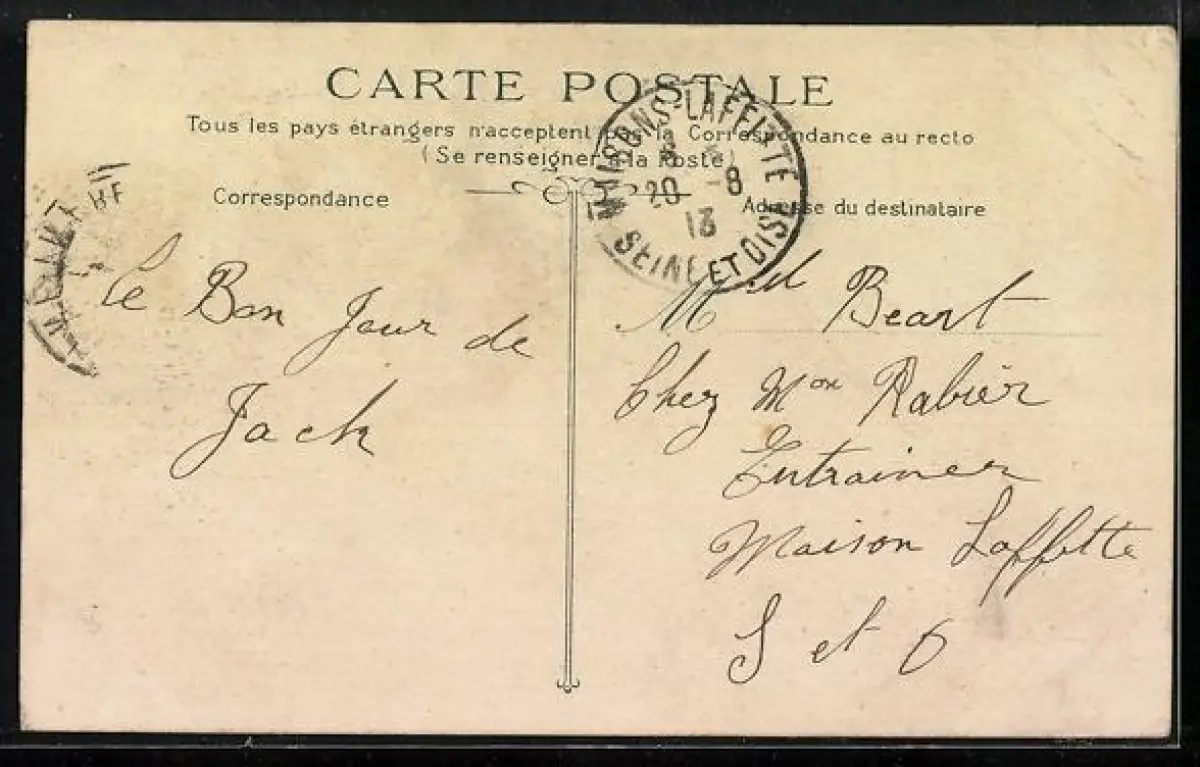 CARTE POSTALE
Tous les pays étrangers n'acceptent pas la Correspondance au recto
(Se renseigner à la Poste)
Correspondance
Adresse du destinataire
MAISONS-LAFFITTE
20 -8
13
SEINE ET OISE
le Bon Jour de
Jack
Beart
Chez Mon Rabier
Entrainer
Maison Laffette
S et O